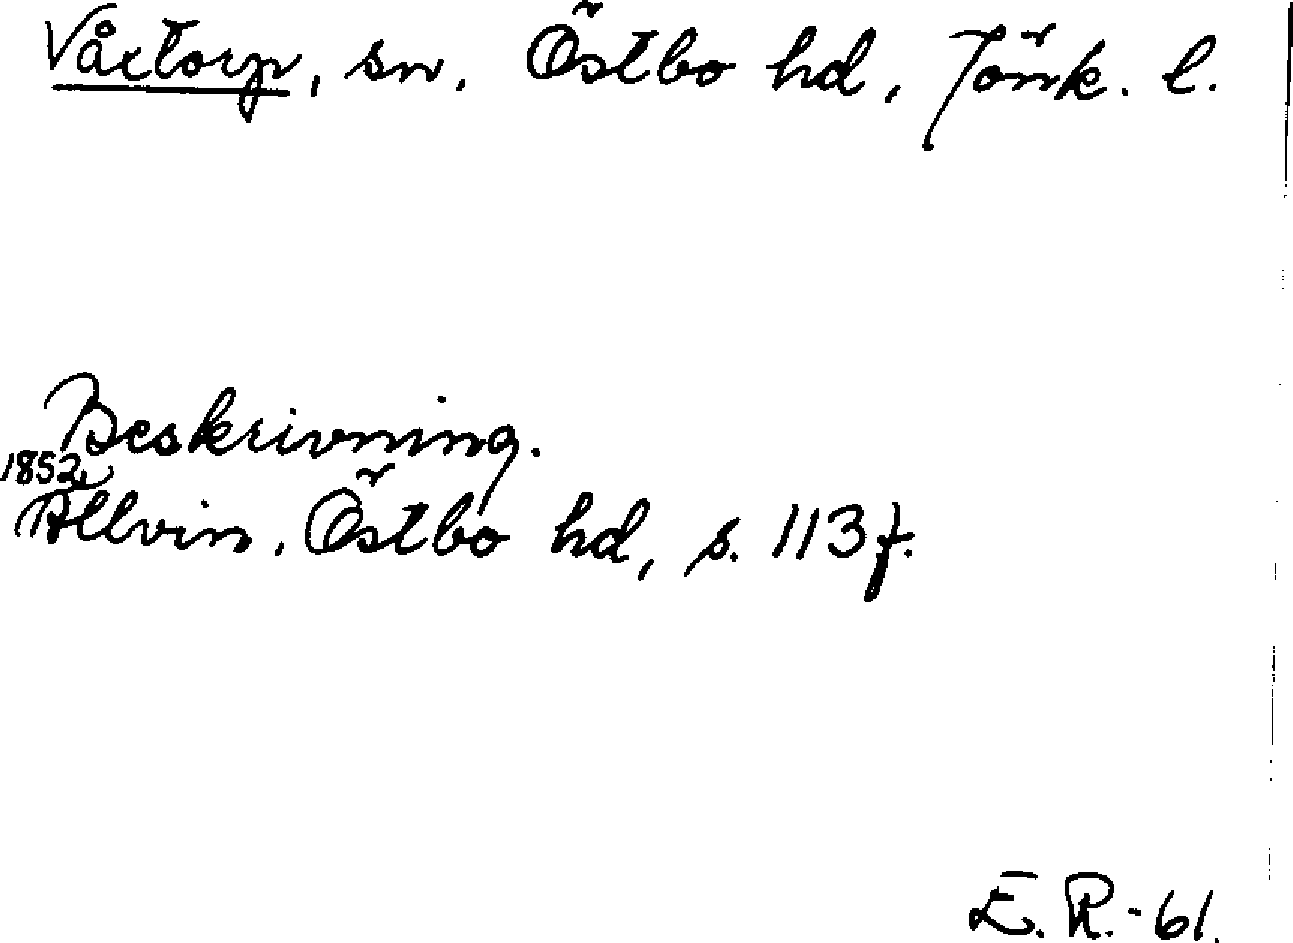 Våxtorp, sn, Östbo hd, Jönk. l.
Beskrivning.
1852,
Allvin, Östbo hd, s. 113 f.
E. R.-61.